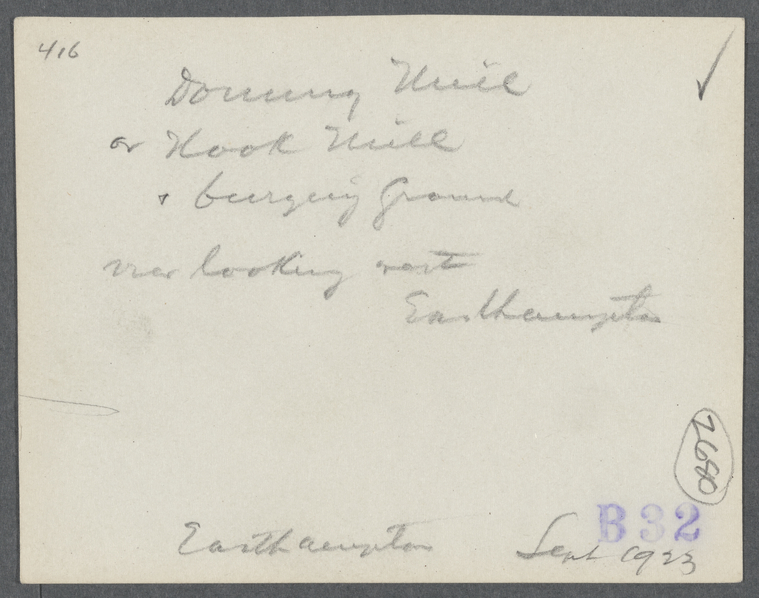 416
Dominy Mill
or Hook Mill
& burying Ground
view looking west
Easthampton
2680
B32
Easthampton Sept 1923